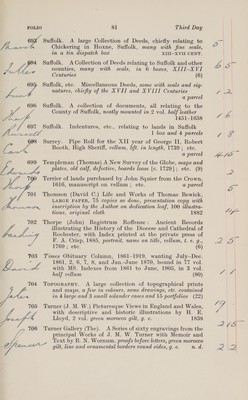 FOLIO 81 Third Day
693 Suffolk. A large Collection of Deeds, chiefly relating to
Chickering in Hoxne, Suffolk, many with fine seals,
in a tin dispatch box XIII-XVII CENT.
5
694 Suffolk. A Collection of Deeds relating to Suffolk and other
counties, many with seals, in 6 boxes, XIII-XVI
Centuries (6)
65
695 Suffolk, etc. Miscellaneous Deeds, some with seals and sig-
natures, chiefly of the XVII and XVIII Centuries
a parcel
2
696 Suffolk. A collection of documents, all relating to the
County of Suffolk, neatly mounted in 2 vol. half leather
1451-1658
16
697 Suffolk. Indentures, etc., relating to lands in Suffolk
1 box and 4 parcels
18
698 Surrey. Pipe Roll for the XII year of George II, Robert
Booth, High Sheriff, vellum, lift. in length, 1739; etc.
a parcel
4-15
899 Templeman (Thomas) A New Survey of the Globe, maps and
plates, old calf, defective, boards loose [c. 1729]; etc. (3)
2
700 Terrier of lands purchased by John Squier from the Crown,
1616, manuscript on vellum; etc. a parcel
701 Thomson (David C.) Life and Works of Thomas Bewick,
LARGE PAPER, 75 copies so done, presentation copy with
inscription by the Author on dedication leaf, 100 illustra-
tions, original cloth 1882
702 Thorpe (John) Registrum Roffense: Ancient Records
illustrating the History of the Diocese and Cathedral of
Rochester, with Index printed at the private press of
F. A. Crisp, 1885, portrait, name on title, vellum, t. e. g.,
1769; etc. (6)
25
703 Times Obituary Column, 1861-1919, wanting July-Dec.
1861, 2, 6, 7, 8, and Jan.-June 1870, bound in 77 vol.
with MS. Indexes from 1861 to June, 1865, in 3 vol.
half vellum (80)
11
704 TOPOGRAPHY. A large collection of topographical prints
and maps, a few in colours, some drawings, etc. contained
in 4 large and 3 small solander cases and 15 portfolios (22)
705 Turner (J. M. W.) Picturesque Views in England and Wales,
with descriptive and historic illustrations by H. E.
Lloyd, 2 vol. green morocco gilt, g. e. 1838
19
706 Turner Gallery (The). A Series of sixty engravings from the
principal Works of J. M. W. Turner with Memoir and
Text by R. N. Wornum, proofs before letters, green morocco
gilt, line and ornamental borders round sides, g. e. n. d.
215
Spencer
2-2